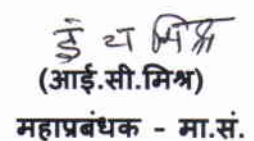 ई च मिश्र
(आई.सी.मिश्र)
महाप्रबंधक - मा.सं.